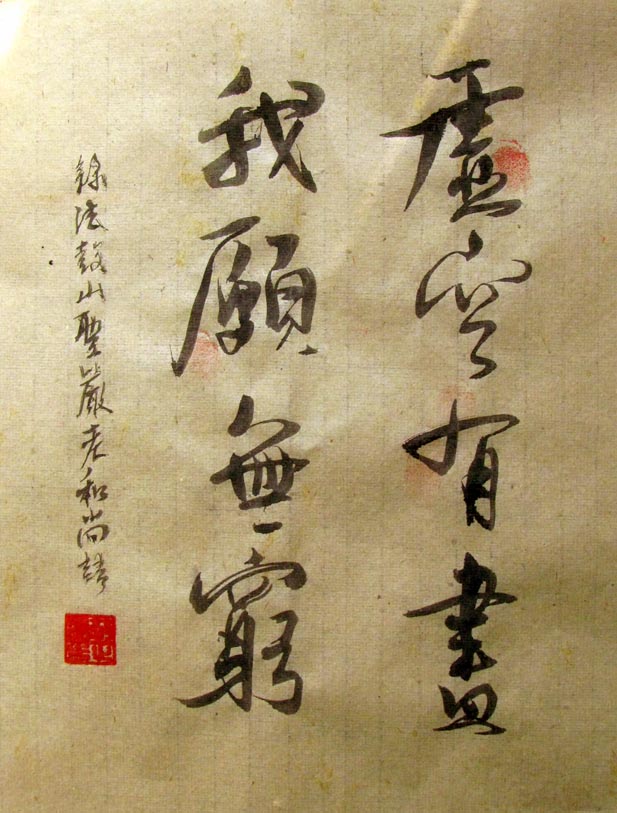 虛空有盡
我願無窮
錄法鼓山聖嚴老和尚